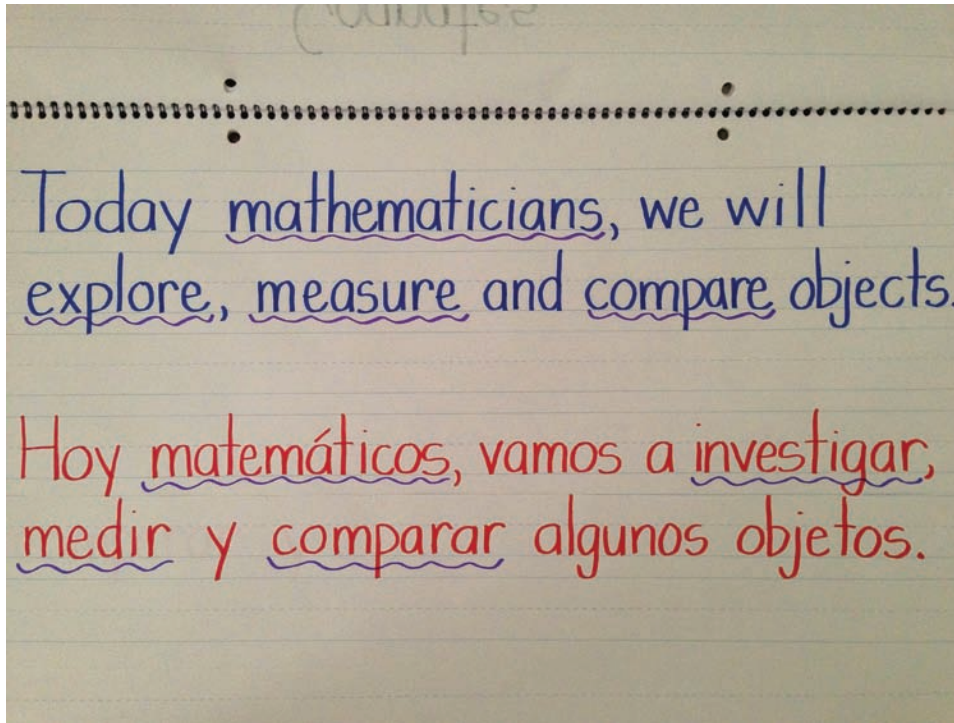 Today mathematicians, we will
explore, measure and compare objects.
Hoy matemáticos, vamos a investigar,
medir y comparar algunos objetos.